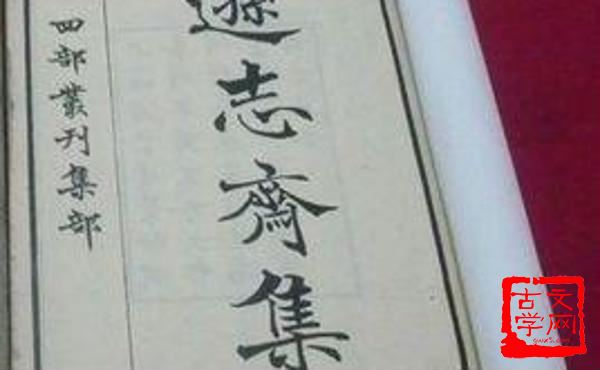 遜志齋集
四部叢刊集部
古文
学网
gwx5.com